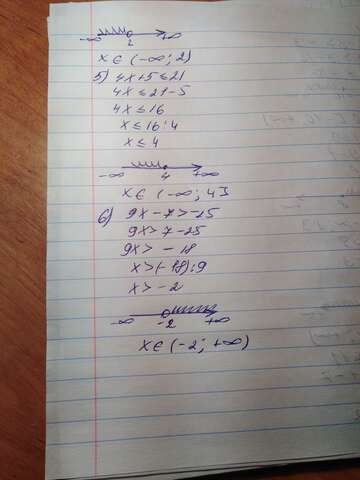 -∞ 2 +∞
x ∈ (-∞; 2)
5) 4x+5≤21
4x≤21-5
4x≤16
x≤16:4
x≤4
-∞ 4 +∞
x∈ (-∞; 4]
6) 9x-7>-25
9x>7-25
9x> -18
x>(-18):9
x>-2
-∞ -2 +∞
x∈ (-2; +∞)